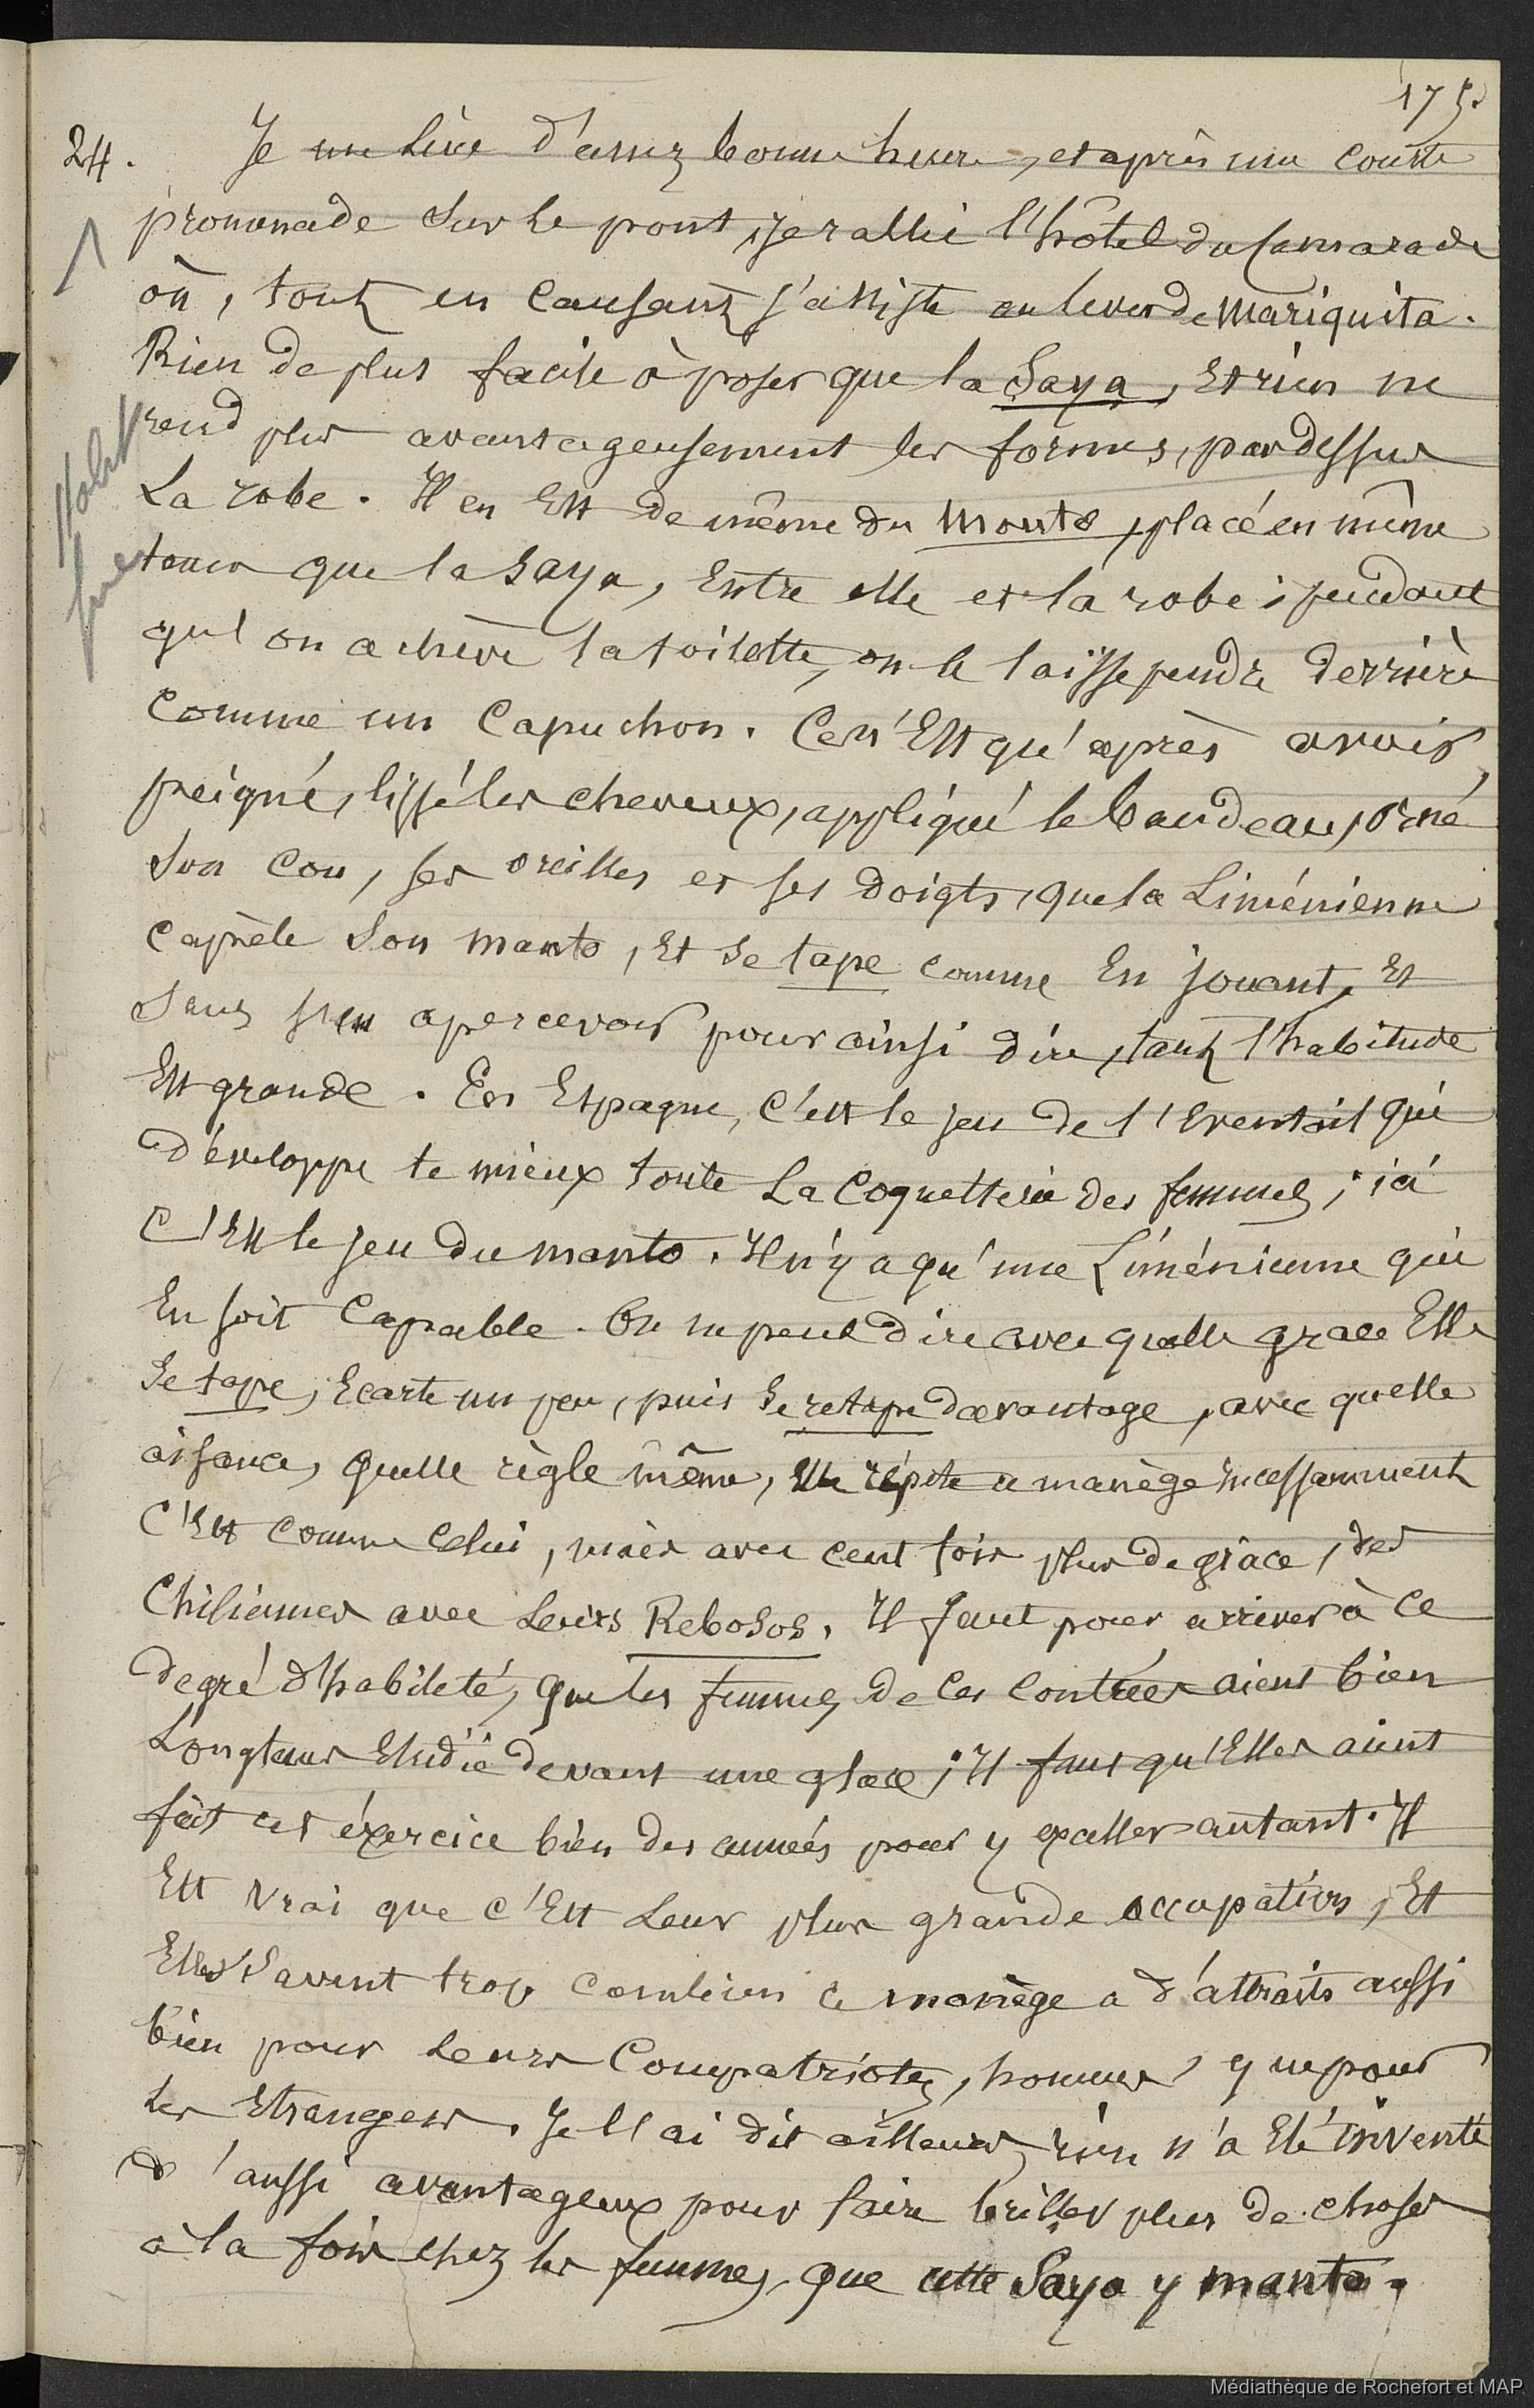 175.
24. Je me lève d'assez bonne heure, et après une courte
promenade sur le pont, je rallie l'hôtel du Camarade
où, tout en causant j'assiste au lever de Mariquita.
Rien de plus facile à poser que la Saya, et rien ne
rend plus avantageusement les formes, par dessus
La robe. Il en Est de même du Manto, placé en même
tems que la Saya, Entre elle et la robe ; pendant
qu'on achève la toilette, on le laisse pendre derrière
Comme un Capuchon. Ce n'Est qu'après avoir,
peigné, lissé les cheveux, appliqué le bandeau, orné
Son Cou, ses oreilles et ses doigts, que la Liménienne
Capèle Son manto, Et Se tape comme En jouant, Et
Sans s'en apercevoir pour ainsi dire, tant l'habitude
Est grande. En Espagne, c'est le jeu de l'Eventail qui
développe le mieux toute La Coquetterie des femmes ; ici
C'Est le jeu du manto. Il n'y a qu'une Liménienne qui
En soit Capable. On ne peut dire avec quelle grace Elle
Se tape, Ecarte un peu, puis Se retape davantage, avec quelle
aisance, quelle règle même, Elle répète ce manège incessamment
C'Est comme Celui, mais avec cent fois plus de grâce, des
Chiliennes avec Leurs Rebosos. Il faut pour arriver à Ce
degré d'habileté, que les femmes de Ces Contrées aient bien
Longtems Etudié devant une glace ; Il faut qu'Elles aient
fait cet éxercice bien des années pour y exceller autant. Il
Est vrai que c'Est Leur plus grande occupation, Et
Elles Savent trop combien ce manège a d'attraits aussi
bien pour Leurs Compatriotes, hommes, que pour
Les Etrangers. Je l'ai dit ailleurs, rien n'a Eté inventé
d'aussi avantageux pour faire briller plus de choses
à la fois chez les femmes, que cette Saya y manto.
Médiathèque de Rochefort et MAP